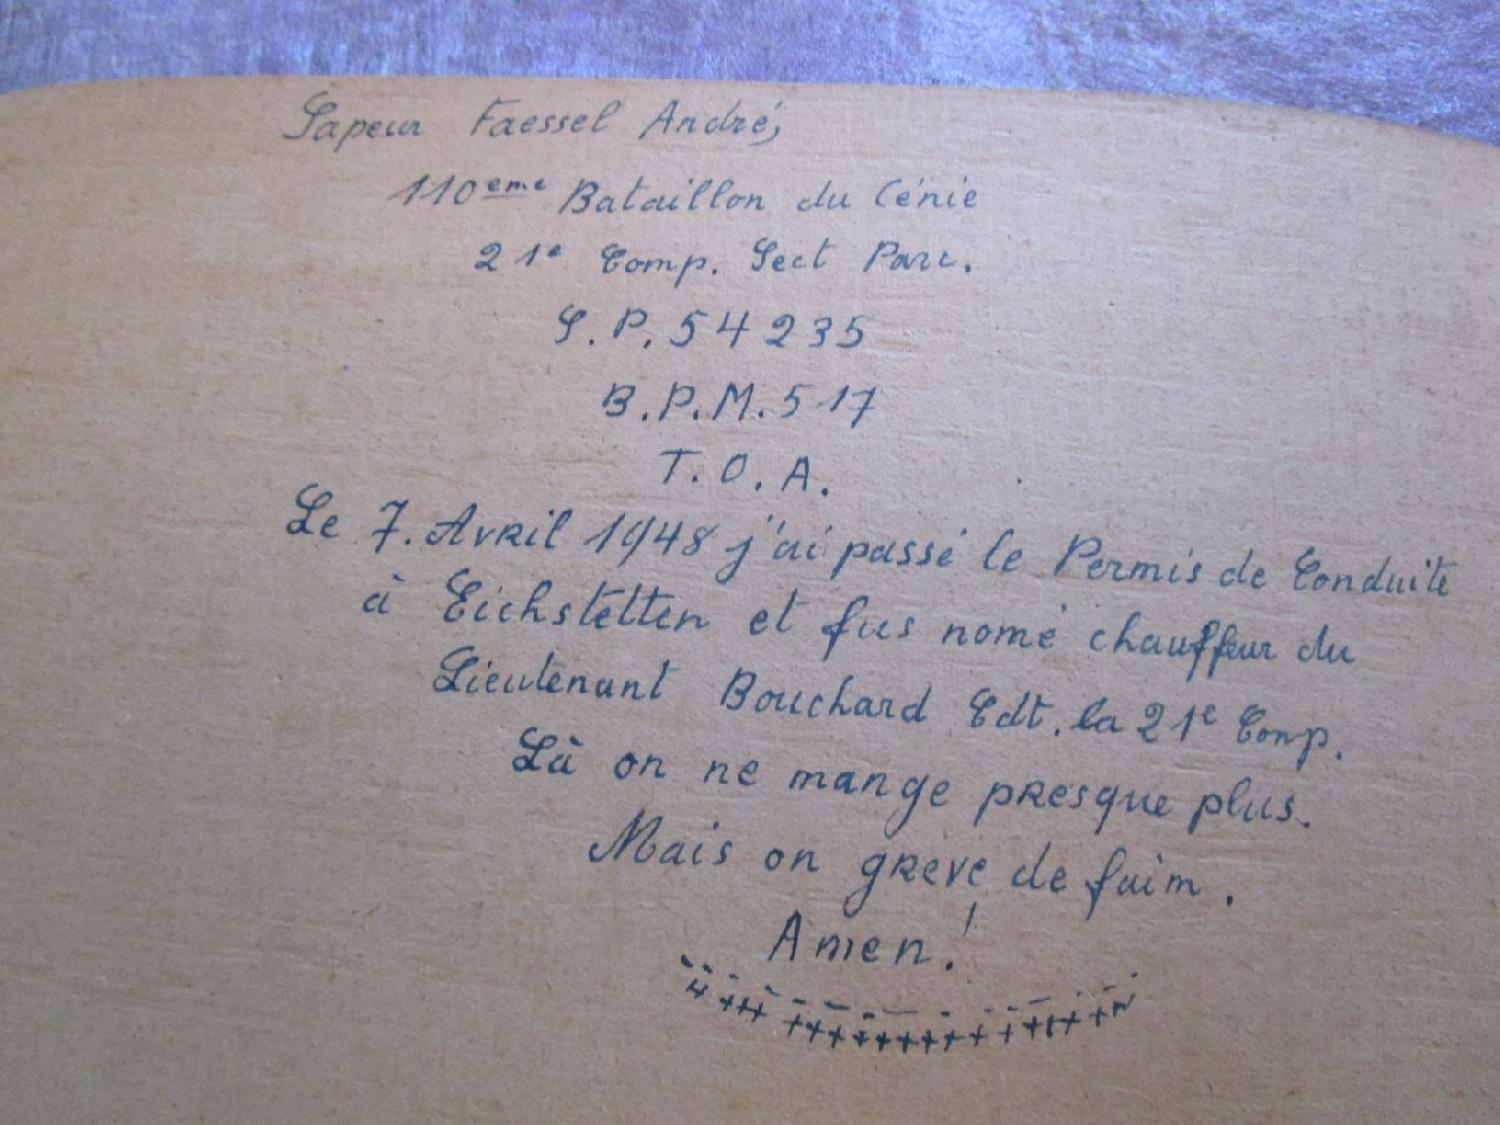 Sapeur Faessel André,
110eme Bataillon du Génie
21e Comp. Sect Parc.
S.P. 54235
B.P.M. 517
T.O.A.
Le 7. Avril 1948 j'ai passé le Permis de Conduite
à Eichstetten et fus nomé chauffeur du
Lieutenant Bouchard Cdt. la 21e Comp.
Là on ne mange presque plus.
Mais on greve de faim.
Amen!